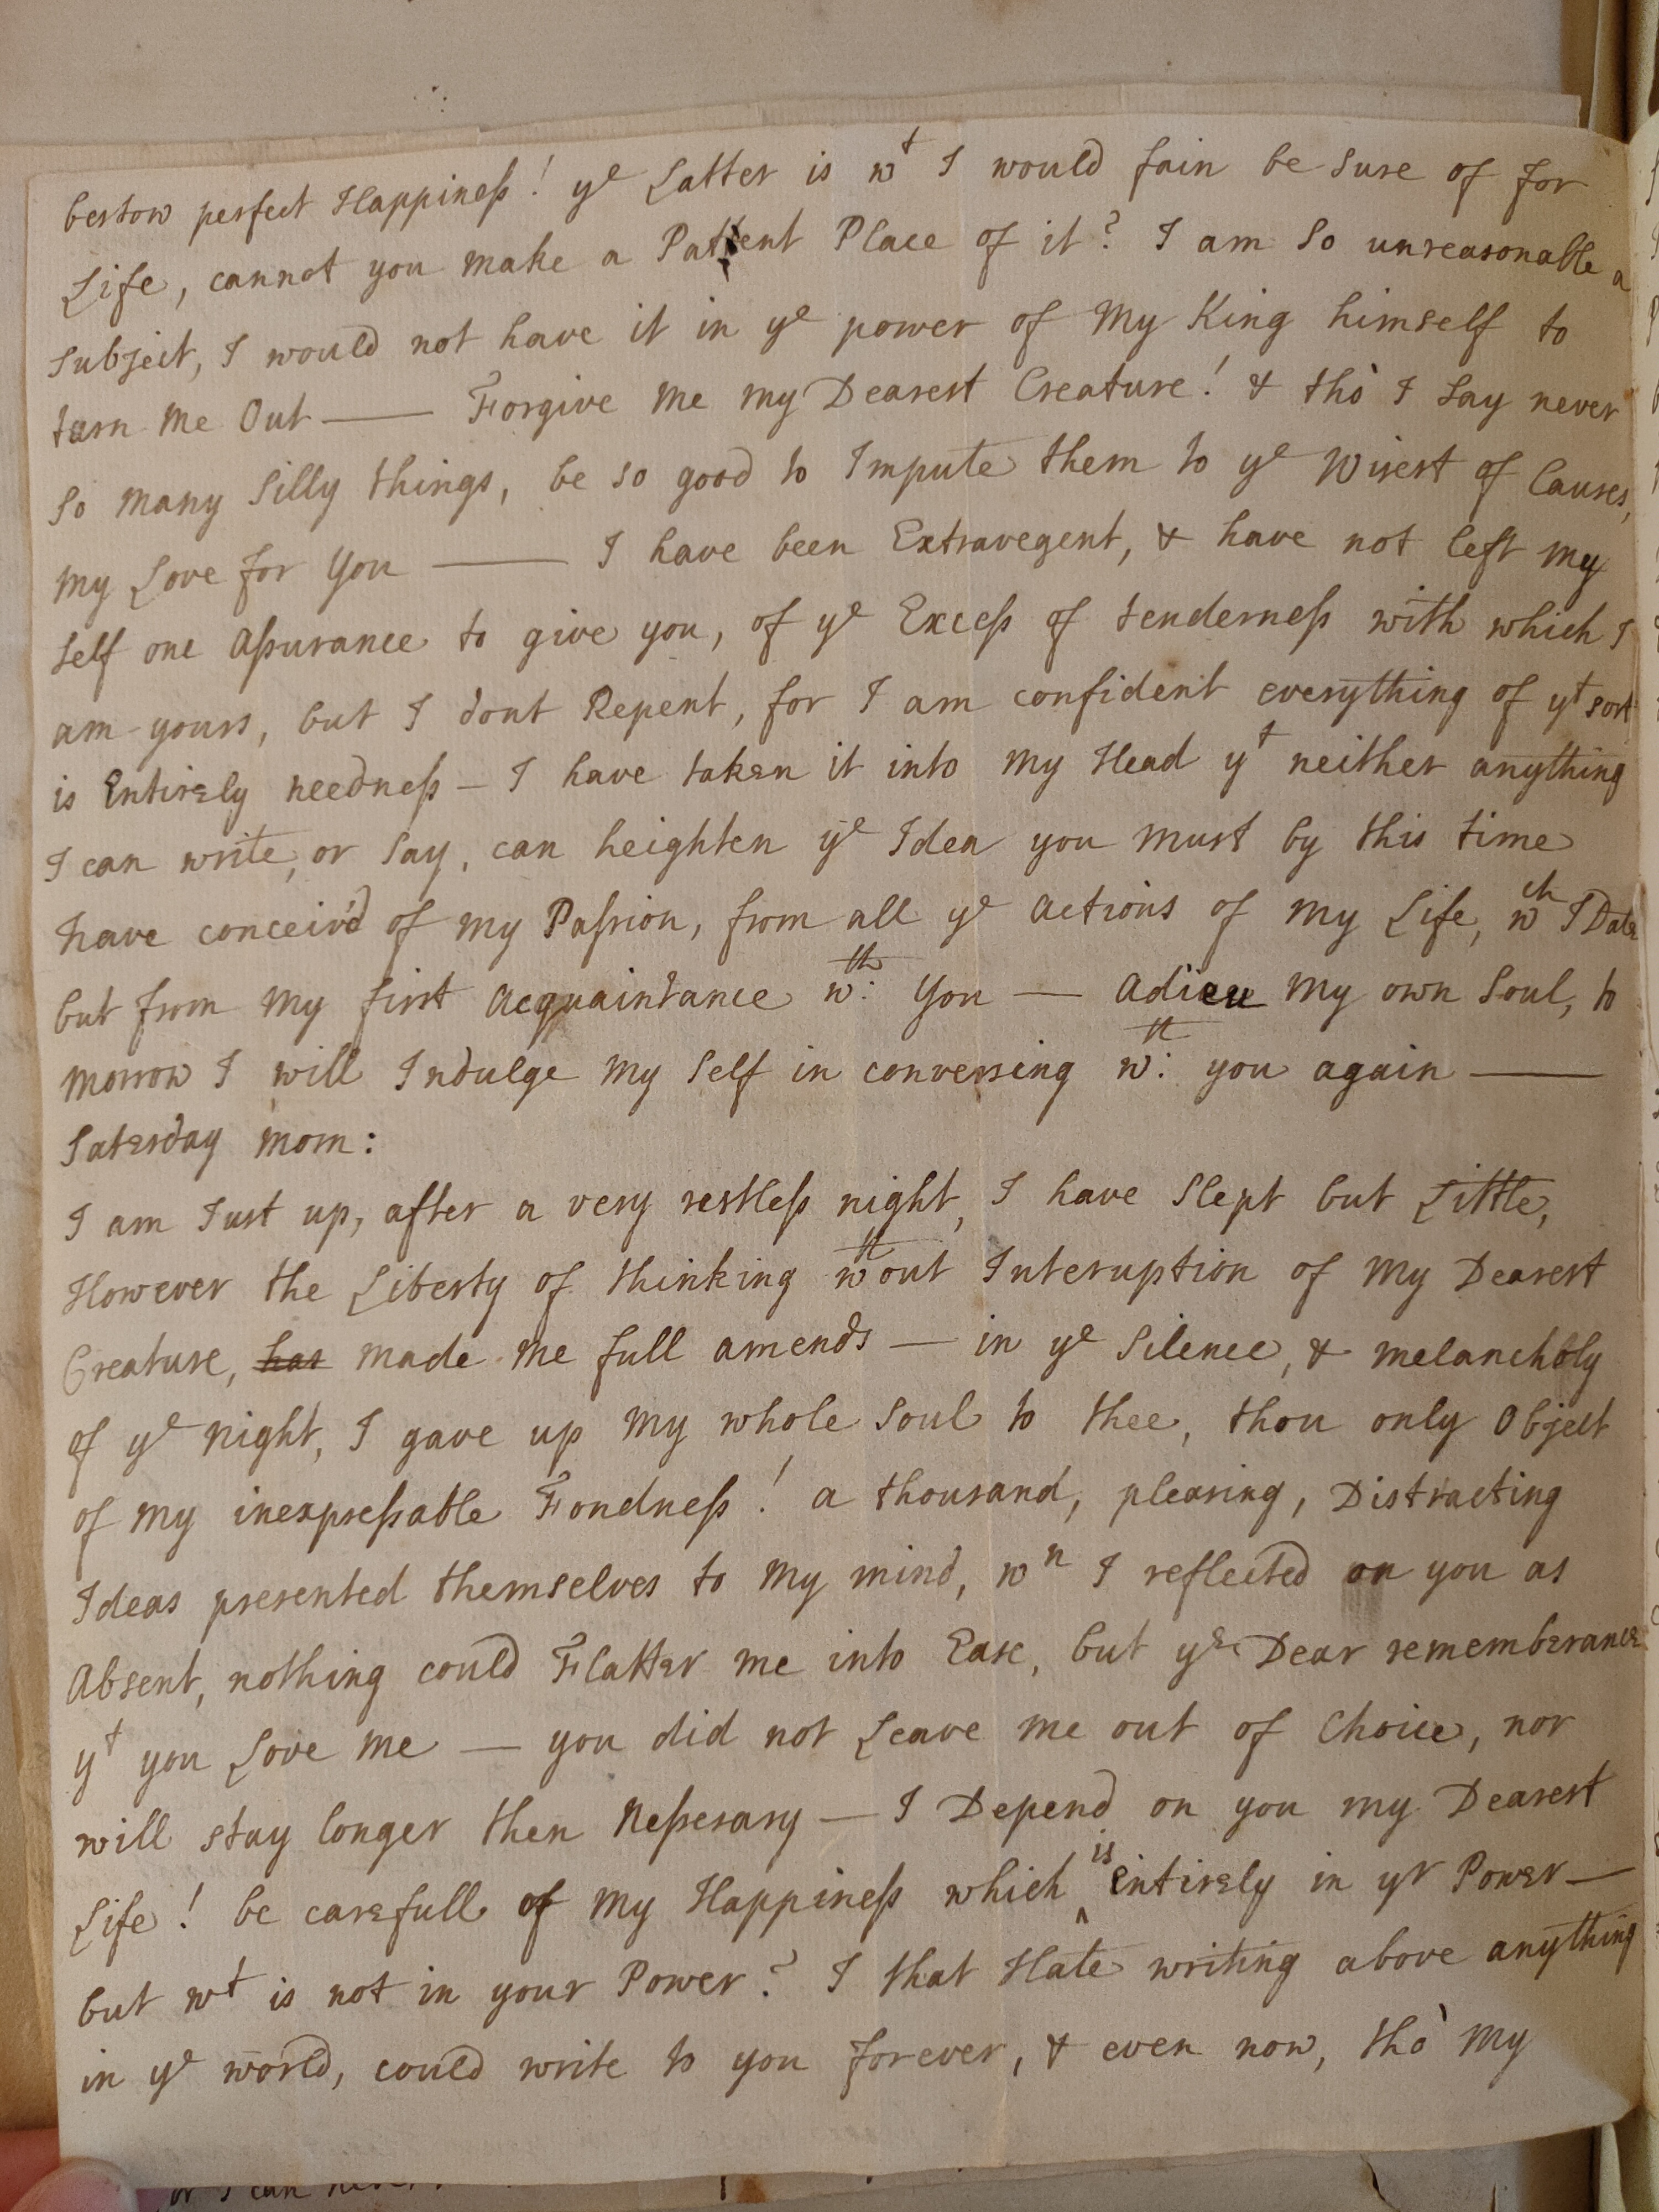 bestow perfect Happineſs! ye Latter is wt I would fain be Sure of for
Life, cannot you make a Patent Place of it? I am So unreasonable a
Subject, I would not have it in ye power of My King himself to
turn Me Out — Forgive Me My Dearest Creature! & thò I Say never
So Many Silly things, be so good to Impute them to ye Wisest of Causes,
My Love for You — I have been Extravegent, & have not left My
Self one Aſsurance to give you, of ye Exceſs of tenderneſs with which I
am yours, but I dont Repent, for I am confident everything of yt sort
is Entirely needneſs — I have taken it into My Head yt neither anything
I can write, or Say, can heighten ye Idea you Must by this time
have conceiv'd of My Paſsion, from all ye Actions of My Life, wch I Date
but from My first Acquaintance wth: You — Adieu My own Soul, to
Morrow I will Indulge My Self in conversing wth: you again —
Saterday Morn:
I am Just up, after a very restleſs night, I have Slept but Little,
However the Liberty of thinking wthout Interuption of My Dearest
Creature, has made Me full amends — in ye Silence, & Melancholy
of ye Night, I gave up My whole Soul to thee, thou only Object
of My inexpreſsable Fondneſs! a thousand, pleasing, Distracting
Ideas presented themselves to My mind, wn I reflected on you as
Absent, nothing could Flatter Me into Ease, but ye Dear rememberance
yt you Love Me — you did not Leave Me out of Choice, nor
will stay longer then Neſsesary — I Depend on you My Dearest
Life! be carefull of My Happineſs which is Entirely in yr Power —
but wt is not in your Power? I that Hate writing above anything
in ye world, could write to you forever, & even now, thò My
or I can never